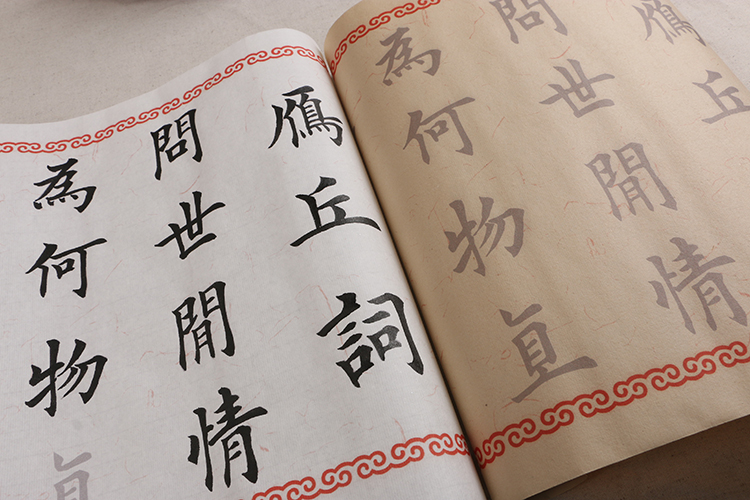 鴈丘
問世閒情
為何物直
鴈丘詞
問世閒情
為何物直